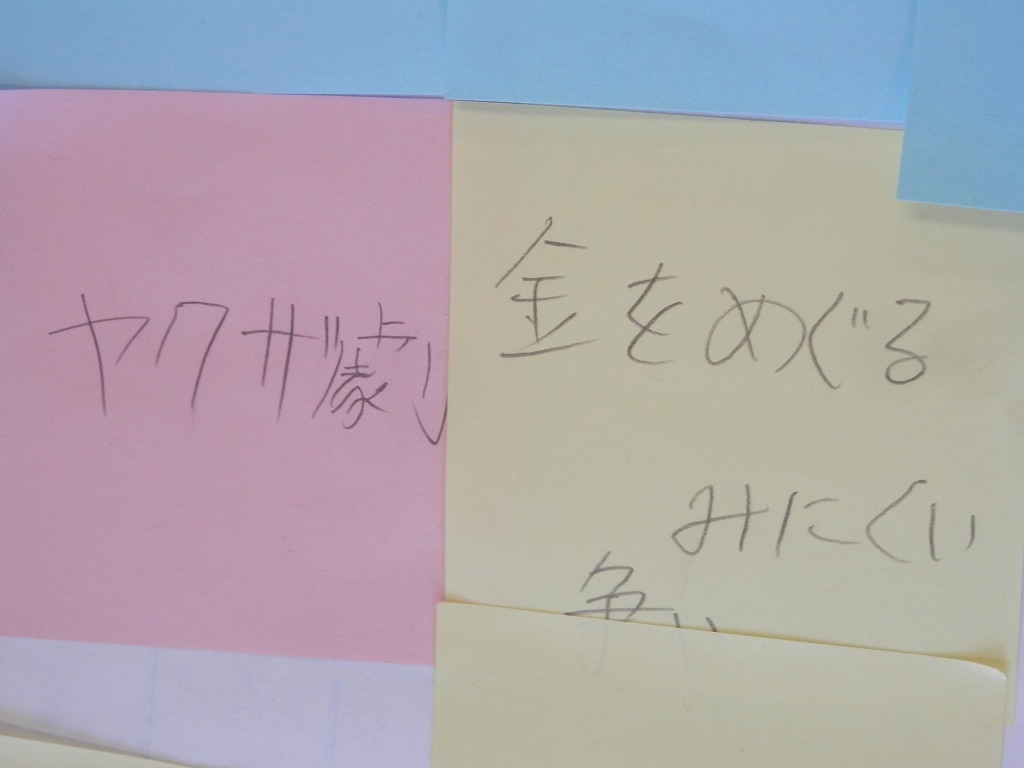 ヤクザ劇
金をめぐる
みにくい
争い